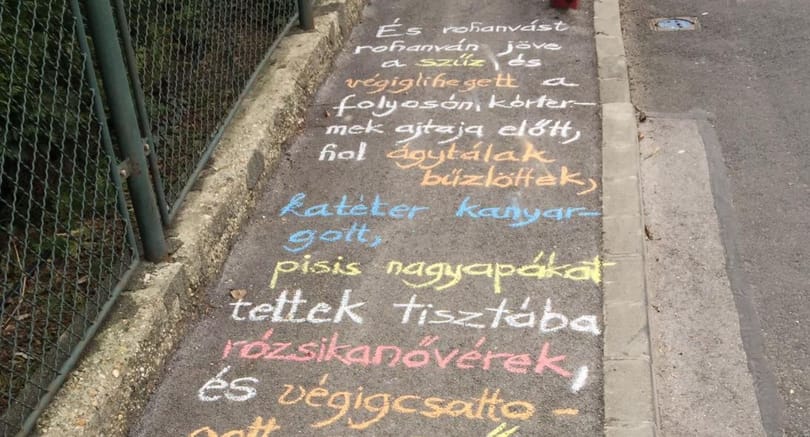 És rohanvást
rohanván jöve
a szűz, és
végiglihegett a
folyosón, kórter-
mek ajtaja előtt,
hol ágytálak
bűzlöttek,
katéter kanyar-
gott,
pisis nagyapákat
tettek tisztába
rózsikanővérek,
és végigcsatto-
gott